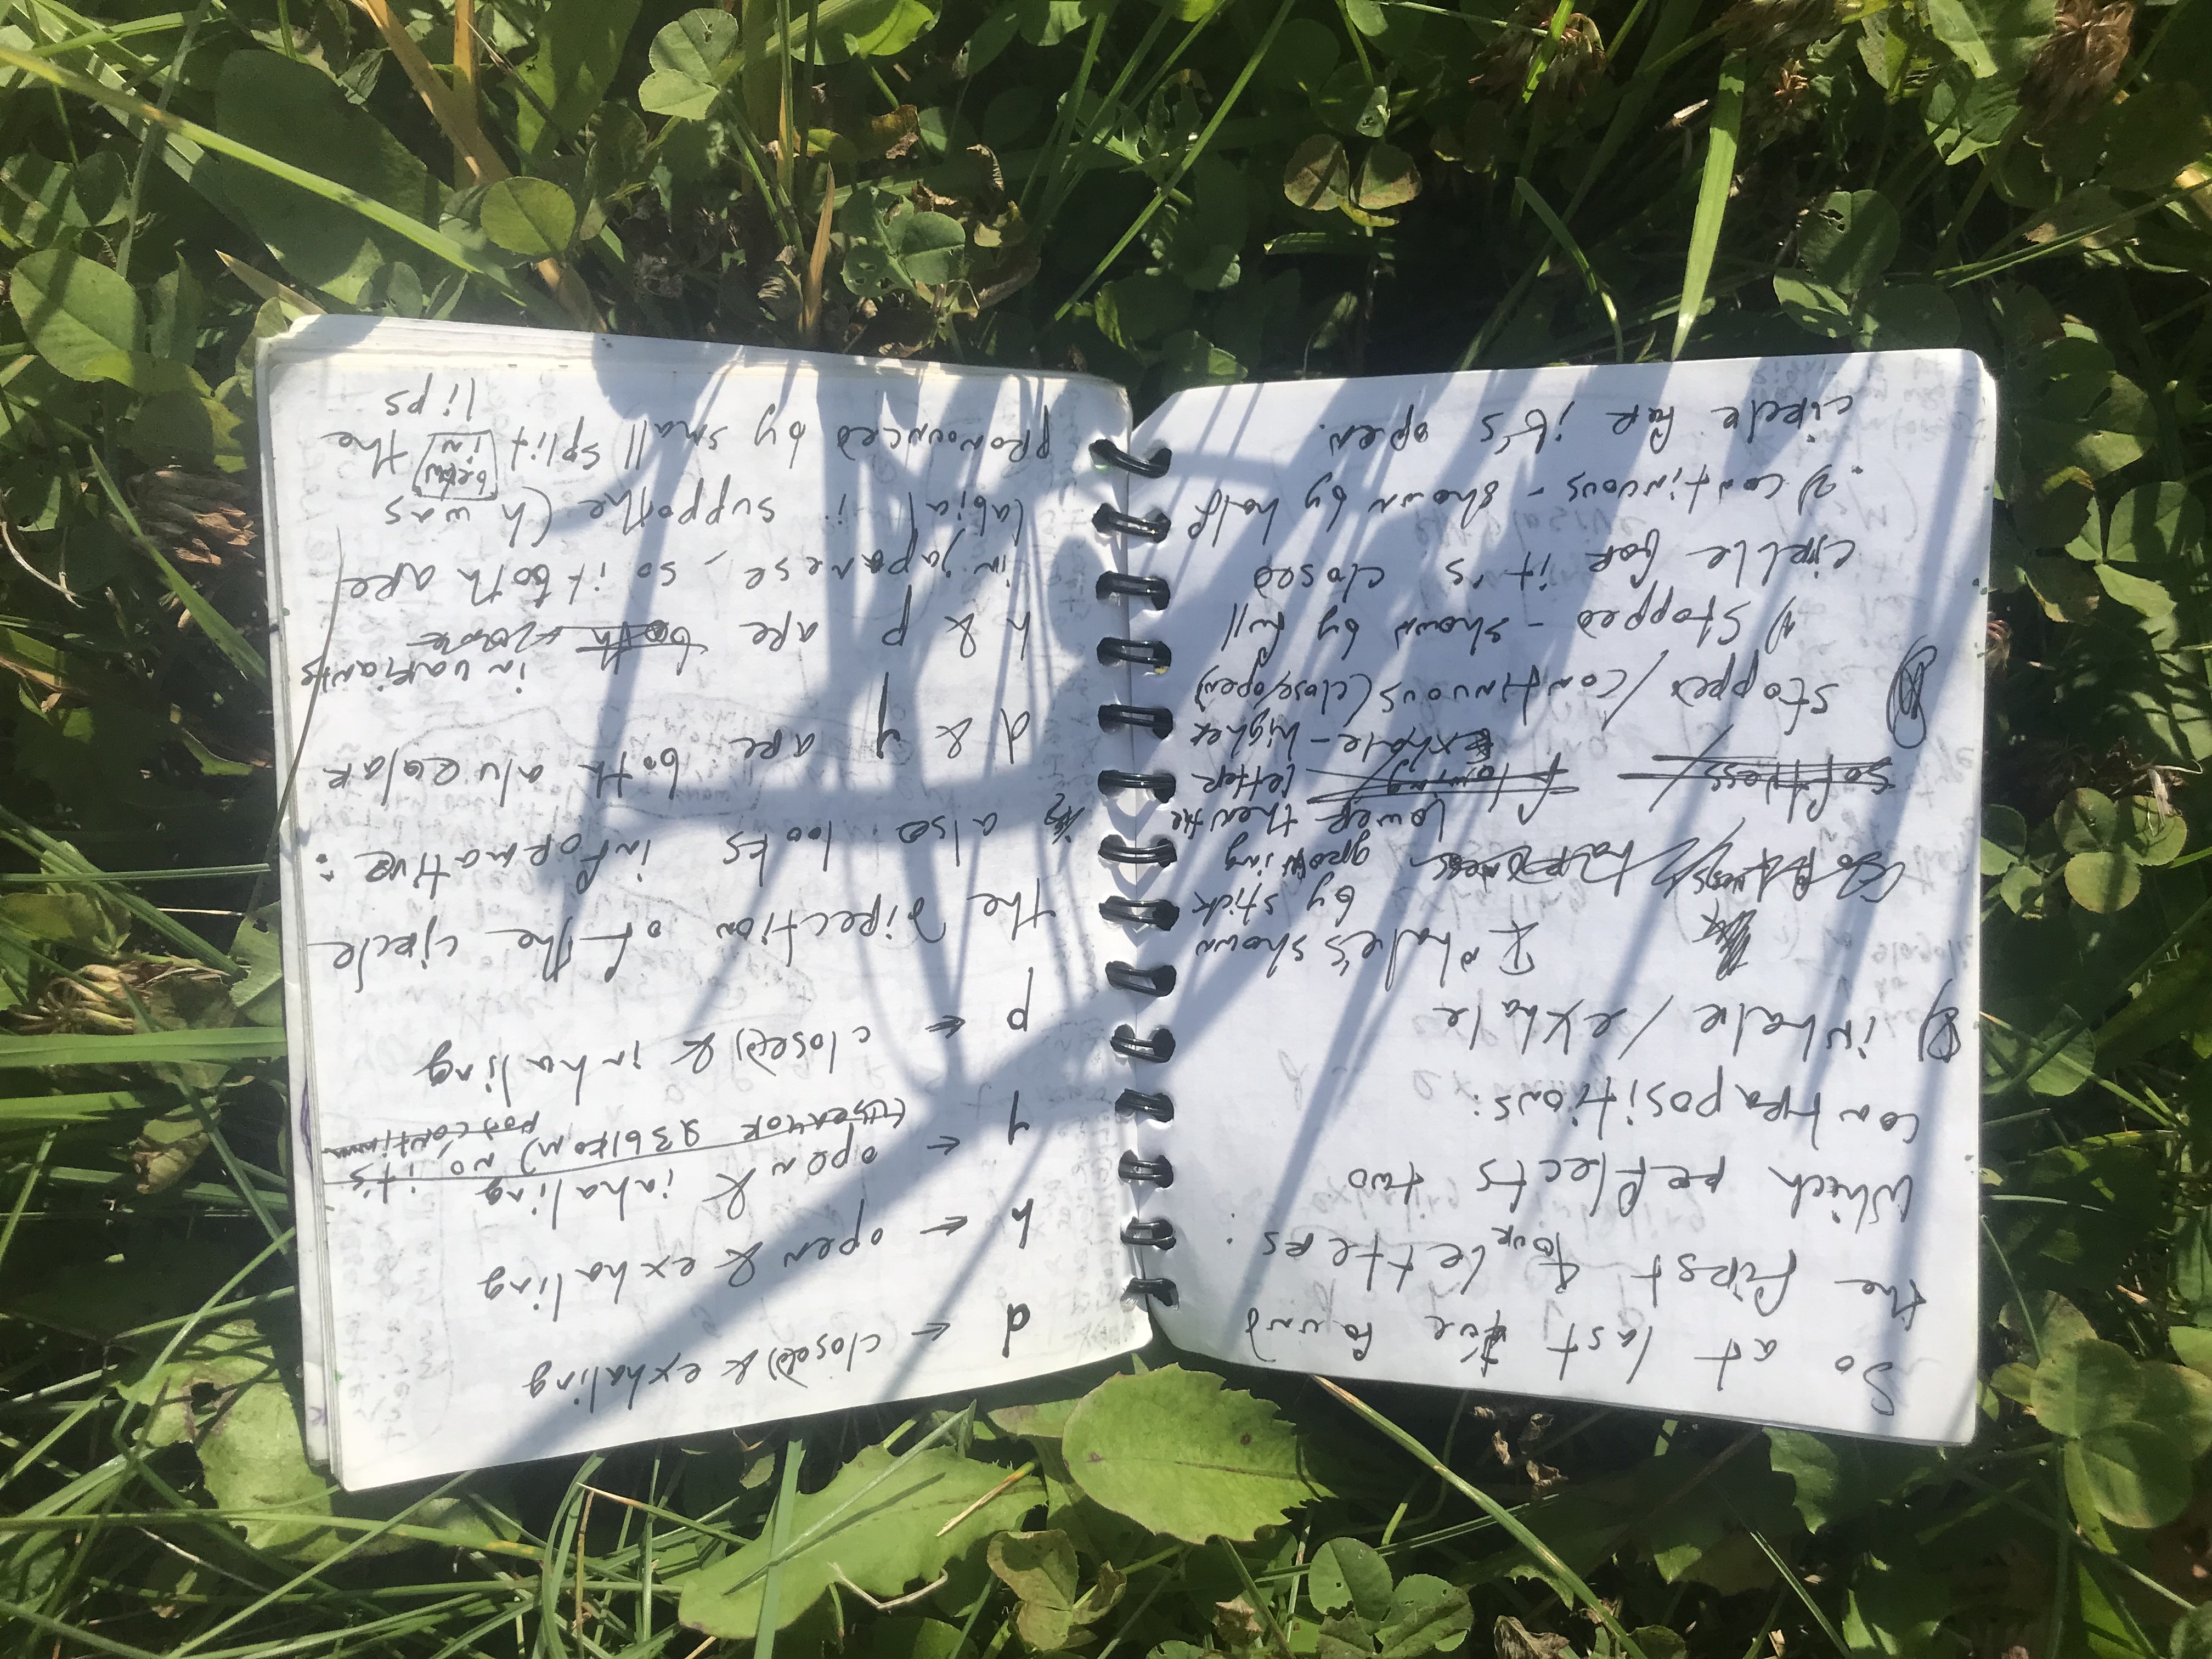 So at last I've found
the first four letters.
Which reflects two
contrapositions:
2) inhale / exhale
Inhale's shown
by stick
softness / hardness growing
lower then the
softness / flowing / letter
Exhale - higher
stopped / continuous (close/open)
1) Stopped - shown by full
circlle for it's closed
2) continuous - shown by half
circle for it's open.
d ← close(d) & exhaling
h ← open & exhaling
y ← open & inhaling
no, it's
not continuum
p ← close(d) & inhaling
the direction of the circle
also looks informative:
d & y are both alveolar
h & p are both in variants
in japanese, so it both are
labial i suppothe (h was
pronounced by small split below in the
lips